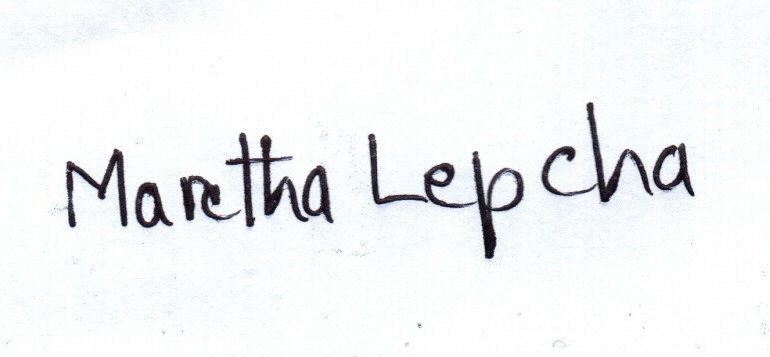 Maretha Lepcha